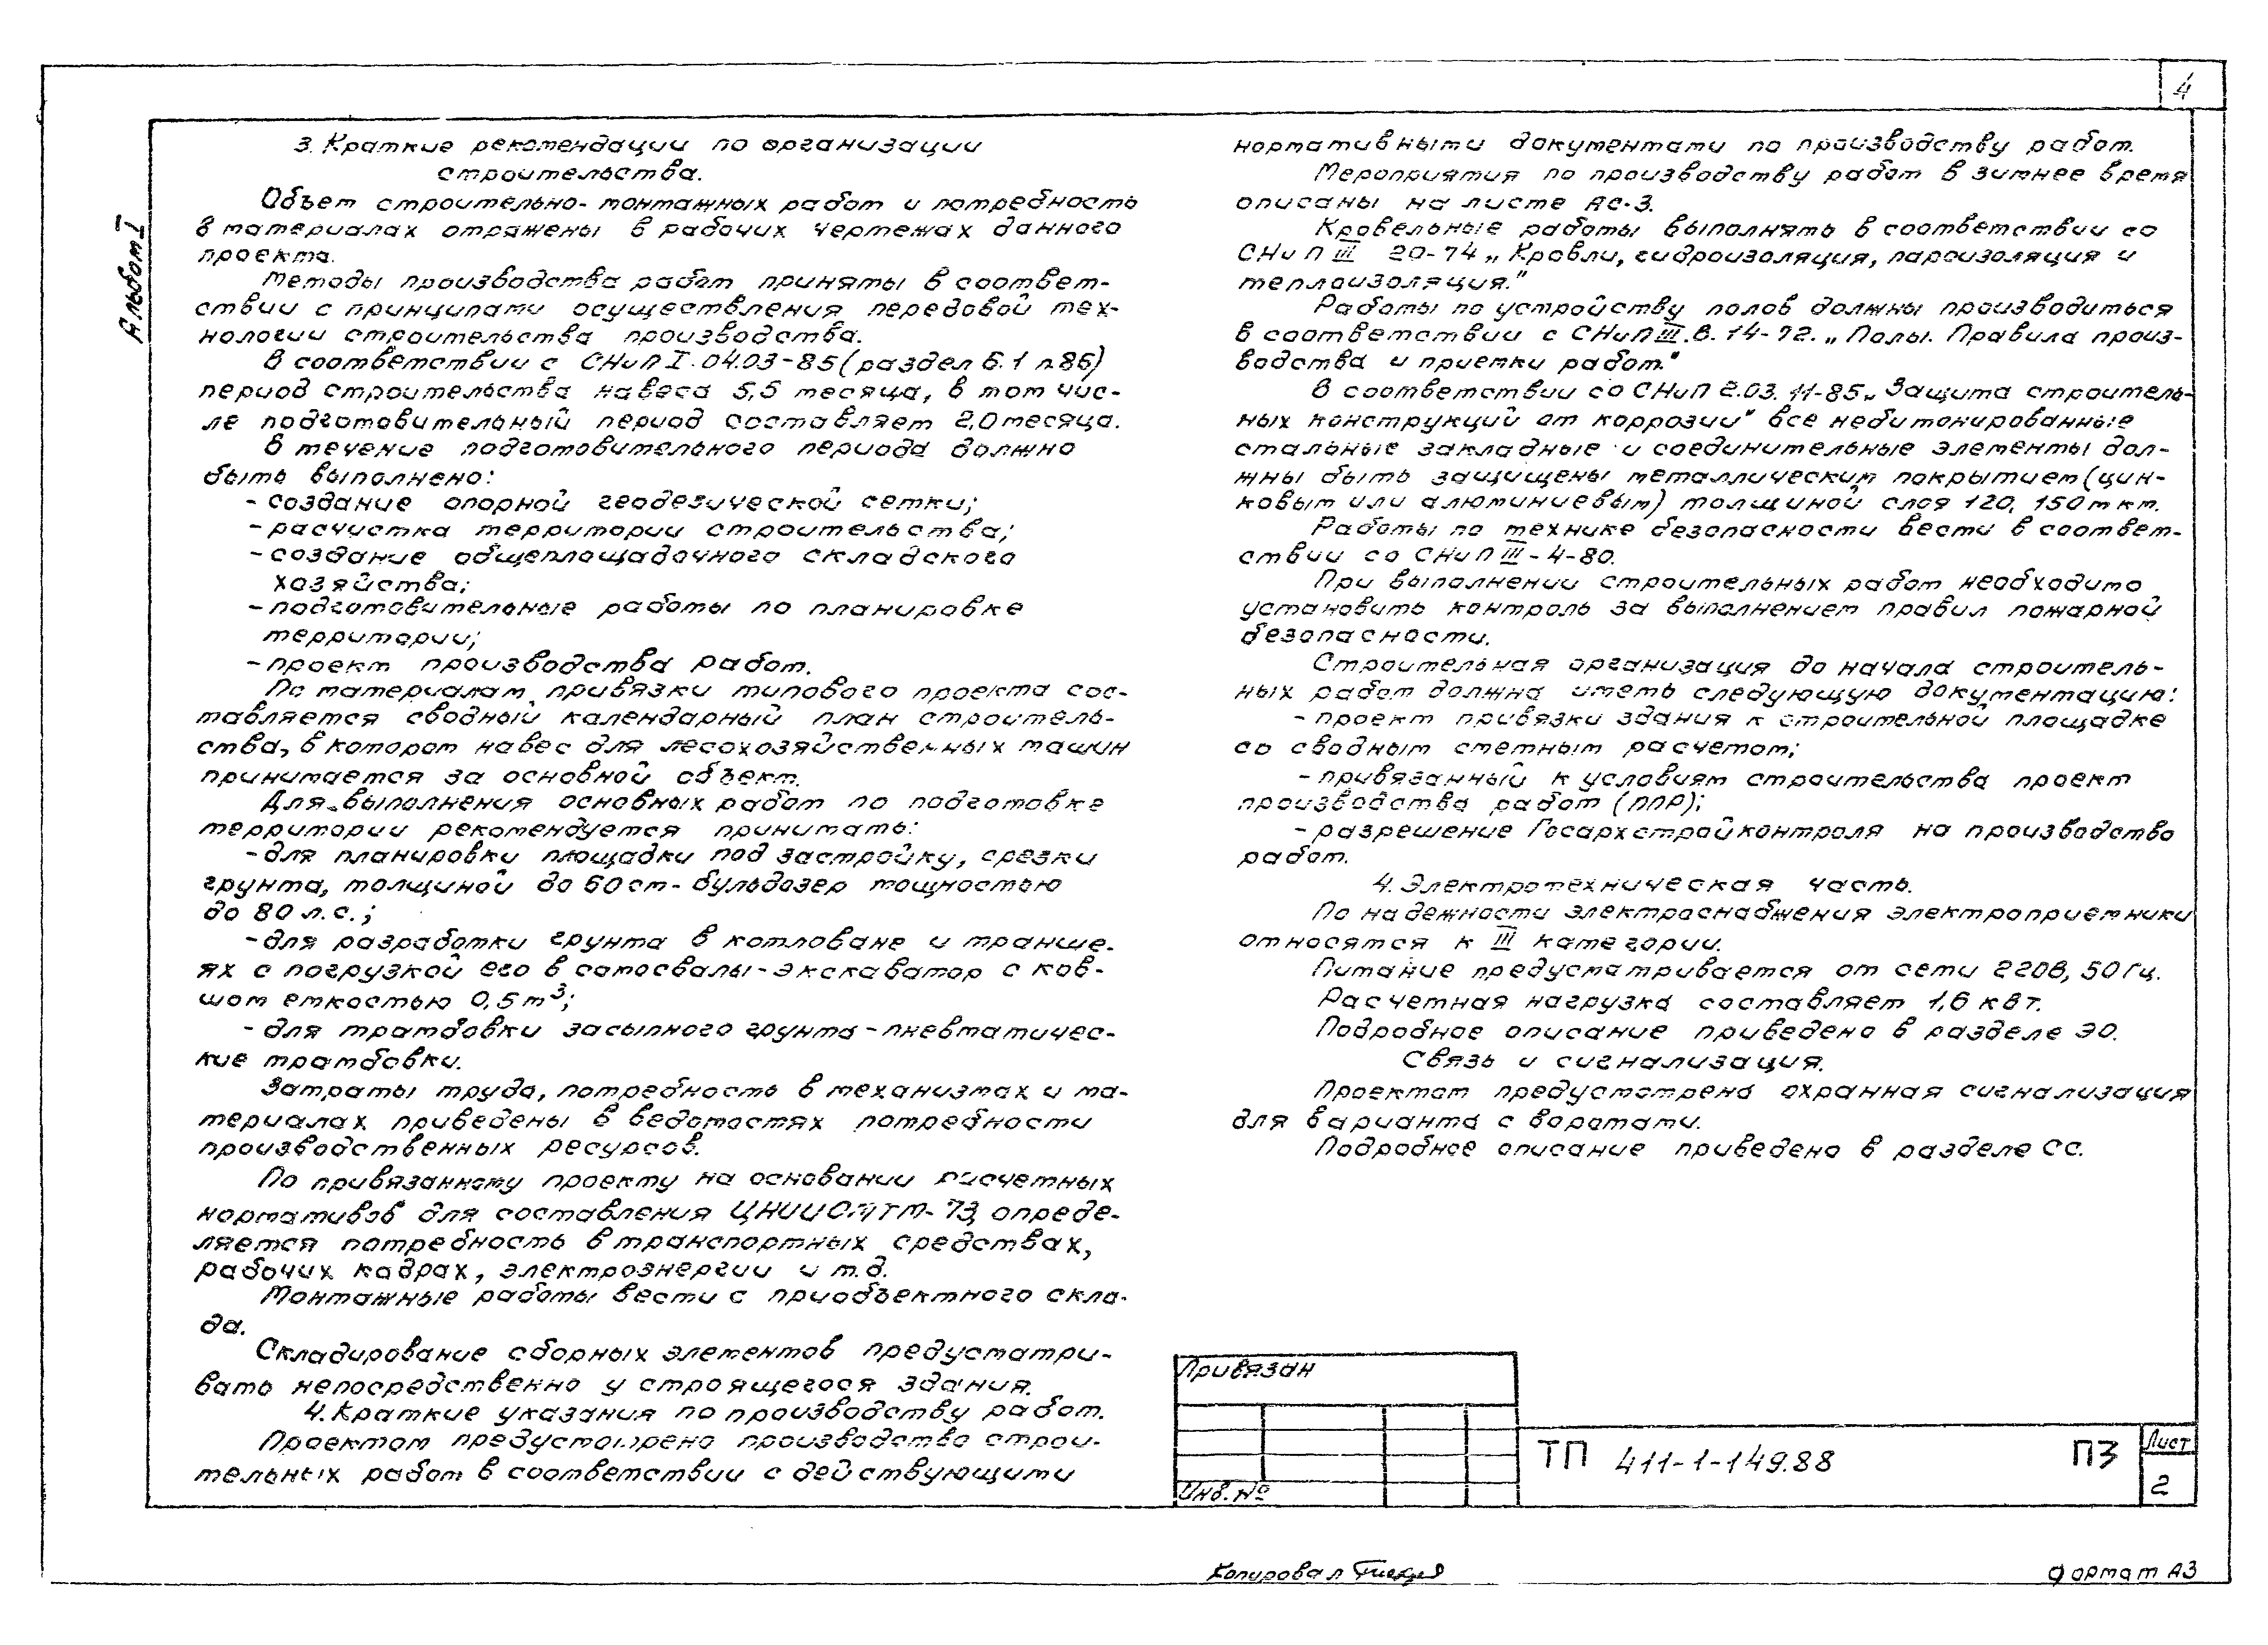 4
Альбом I
3. Краткие рекомендации по организации
строительства.
Объем строительно-монтажных работ и потребность
в материалах отражены в рабочих чертежах данного
проекта.
Методы производства работ приняты в соответ-
ствии с принципами осуществления передовой тех-
нологии строительства производства.
В соответствии с СНиП I.04.03-85 (раздел Б.1 п.86)
период строительства навеса 5,5 месяца, в том чис-
ле подготовительный период составляет 2,0 месяца.
В течение подготовительного периода должно
быть выполнено:
- создание опорной геодезической сетки;
- расчистка территории строительства;
- создание общеплощадочного складского
хозяйства;
- подготовительные работы по планировке
территории;
- проект производства работ.
По материалам привязки типового проекта сос-
тавляется сводный календарный план строитель-
ства, в котором навес для лесохозяйственных машин
принимается за основной объект.
Для выполнения основных работ по подготовке
территории рекомендуется принимать:
- для планировки площадки под застройку, срезки
грунта, толщиной до 60 см - бульдозер мощностью
до 80 л.с.;
- для разработки грунта в котловане и транше-
ях с погрузкой его в самосвалы - экскаватор с ков-
шом емкостью 0,5 м³;
- для трамбовки засыпного грунта - пневматичес-
кие трамбовки.
Затраты труда, потребность в механизмах и ма-
териалах приведены в ведомостях потребности
производственных ресурсов.
По привязанному проекту на основании расчетных
нормативов для составления ЦНИИОМТМ-73, опреде-
ляется потребность в транспортных средствах,
рабочих кадрах, электроэнергии и т.д.
Монтажные работы вести с приобъектного скла-
да.
Складирование сборных элементов предусматри-
вать непосредственно у строящегося здания.
4. Краткие указания по производству работ.
Проектом предусмотрено производство строи-
тельных работ в соответствии с действующими
нормативными документами по производству работ.
Мероприятия по производству работ в зимнее время
описаны на листе АС-3.
Кровельные работы выполнять в соответствии со
СНиП III 20-74 „Кровли, гидроизоляция, пароизоляция и
теплоизоляция."
Работы по устройству полов должны производиться
в соответствии с СНиП III.В.14-72. „Полы. Правила произ-
водства и приемки работ."
В соответствии со СНиП 2.03.11-85 „Защита строитель-
ных конструкций от коррозии" все небитонированные
стальные закладные и соединительные элементы дол-
жны быть защищены металлическим покрытием (цин-
ковым или алюминиевым) толщиной слоя 120, 150 мкм.
Работы по технике безопасности вести в соответ-
ствии со СНиП III-4-80.
При выполнении строительных работ необходимо
установить контроль за выполнением правил пожарной
безопасности.
Строительная организация до начала строитель-
ных работ должна иметь следующую документацию:
- проект привязки здания к строительной площадке
со сводным сметным расчетом;
- привязанный к условиям строительства проект
производства работ (ППР);
- разрешение Госархстройконтроля на производство
работ.
4. Электротехническая часть.
По надежности электроснабжения электроприемники
относятся к III категории.
Питание предусматривается от сети 220В, 50 Гц.
Расчетная нагрузка составляет 1,6 кВт.
Подробное описание приведено в разделе ЭО.
Связь и сигнализация.
Проектом предусмотрена охранная сигнализация
для варианта с воротами.
Подробное описание приведено в разделе СС.
Привязан
Инв. №
ТП 411-1-149.88 ПЗ
Лист
2
Копировал
Формат А3